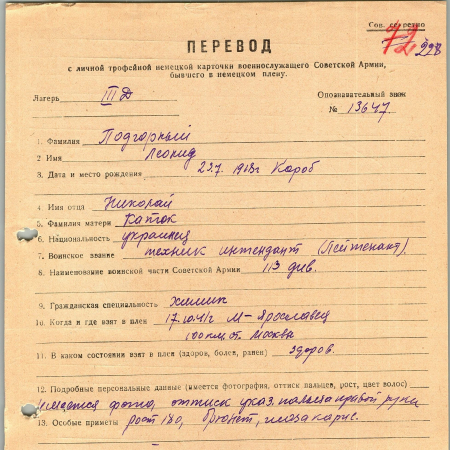 Сов. секретно
72 228
ПЕРЕВОД
с личной трофейной немецкой карточки военнослужащего Советской Армии,
бывшего в немецком плену.
Лагерь III Д
Опознавательный знак
№ 13647.
1. Фамилия Подгорный
2 Имя Леонид
3. Дата и место рождения 23.7. 1918г Короб
4. Имя отца Николай
5. Фамилия матери Каток
6. Национальность украинец
7. Воинское звание техник интендант (Лейтенант).
8. Наименование воинской части Советской Армии 113 див.
9. Гражданская специальность химик
10. Когда и где взят в плен 17.10.41г М-Ярославец
100 км от Москва
11. В каком состоянии взят в плен (здоров, болен, ранен) здоров.
12. Подробные персональные данные (имеется фотография, оттиск пальцев, рост, цвет волос)
Имеется фото, оттиск указ. пальца правой руки
13. Особые приметы рост 180, брюнет, глаза карие.